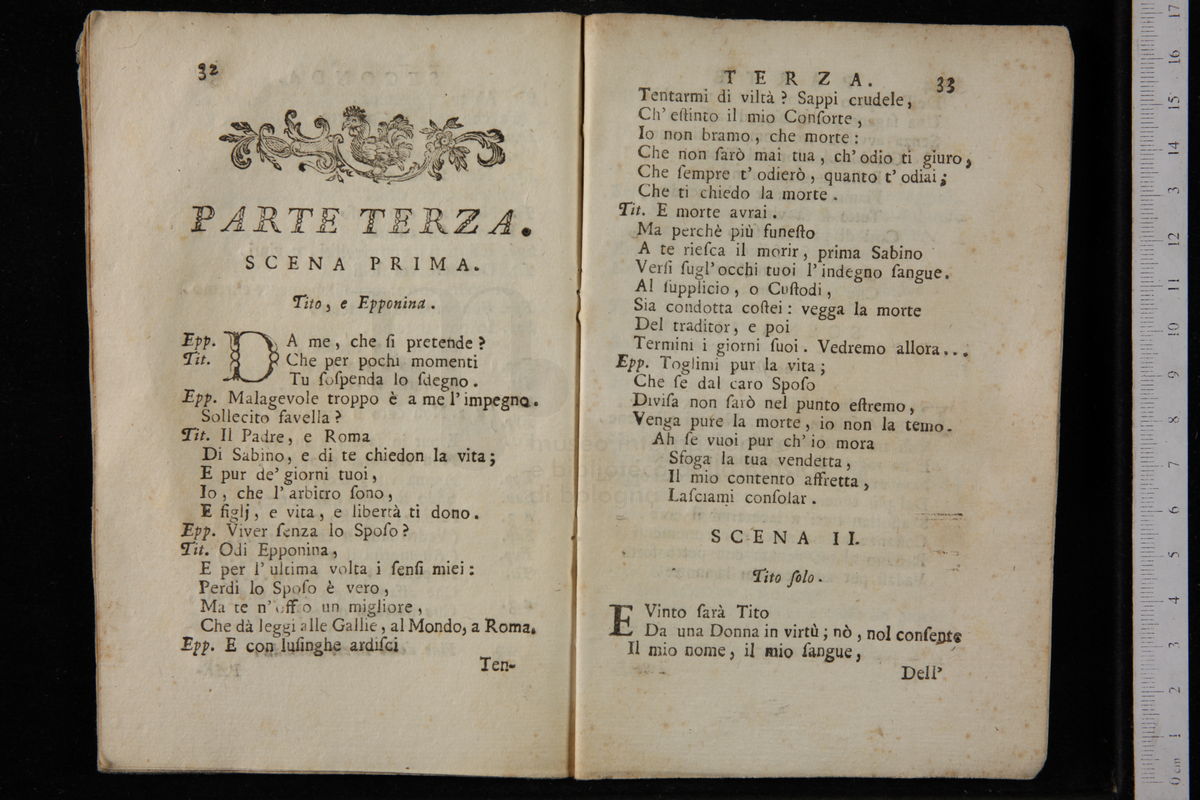 32
PARTE TERZA.
SCENA PRIMA.
Tito, e Epponina.
Epp. DA me, che ſi pretende?
Tit. Che per pochi momenti
Tu ſoſpenda lo ſdegno.
Epp. Malagevole troppo è a me l'impegno.
Sollecito favella?
Tit. Il Padre, e Roma
Di Sabino, e di te chiedon la vita;
E pur de' giorni tuoi,
Io, che l'arbitro ſono,
E figlj, e vita, e libertà ti dono.
Epp. Viver ſenza lo Spoſo?
Tit. Odi Epponina,
E per l'ultima volta i ſenſi miei:
Perdi lo Spoſo è vero,
Ma te n'offro un migliore,
Che dà leggi alle Gallie, al Mondo, a Roma.
Epp. E con luſinghe ardiſci
Ten-
TERZA. 33
Tentarmi di viltà? Sappi crudele,
Ch' eſtinto il mio Conſorte,
Io non bramo, che morte:
Che non ſarò mai tua, ch' odio ti giuro,
Che ſempre t' odierò, quanto t' odiai;
Che ti chiedo la morte.
Tit. E morte avrai.
Ma perchè più funeſto
A te rieſca il morir, prima Sabino
Verſi ſugl' occhi tuoi l'indegno ſangue.
Al ſupplicio, o Cuſtodi,
Sia condotta coſtei: vegga la morte
Del traditor, e poi
Termini i giorni ſuoi. Vedremo allora...
Epp. Toglimi pur la vita;
Che ſe dal caro Spoſo
Diviſa non ſarò nel punto eſtremo,
Venga pure la morte, io non la temo.
Ah ſe vuoi pur ch' io mora
Sfoga la tua vendetta,
Il mio contento affretta,
Laſciami conſolar.
SCENA II.
Tito ſolo.
E Vinto ſarà Tito
Da una Donna in virtù; nò, nol conſente
Il mio nome, il mio ſangue,
Dell'
museo
e biblioteca
di bologna
0 cm 1 2 3 4 5 6 7 8 9 10 11 12 13 14 15 16 17